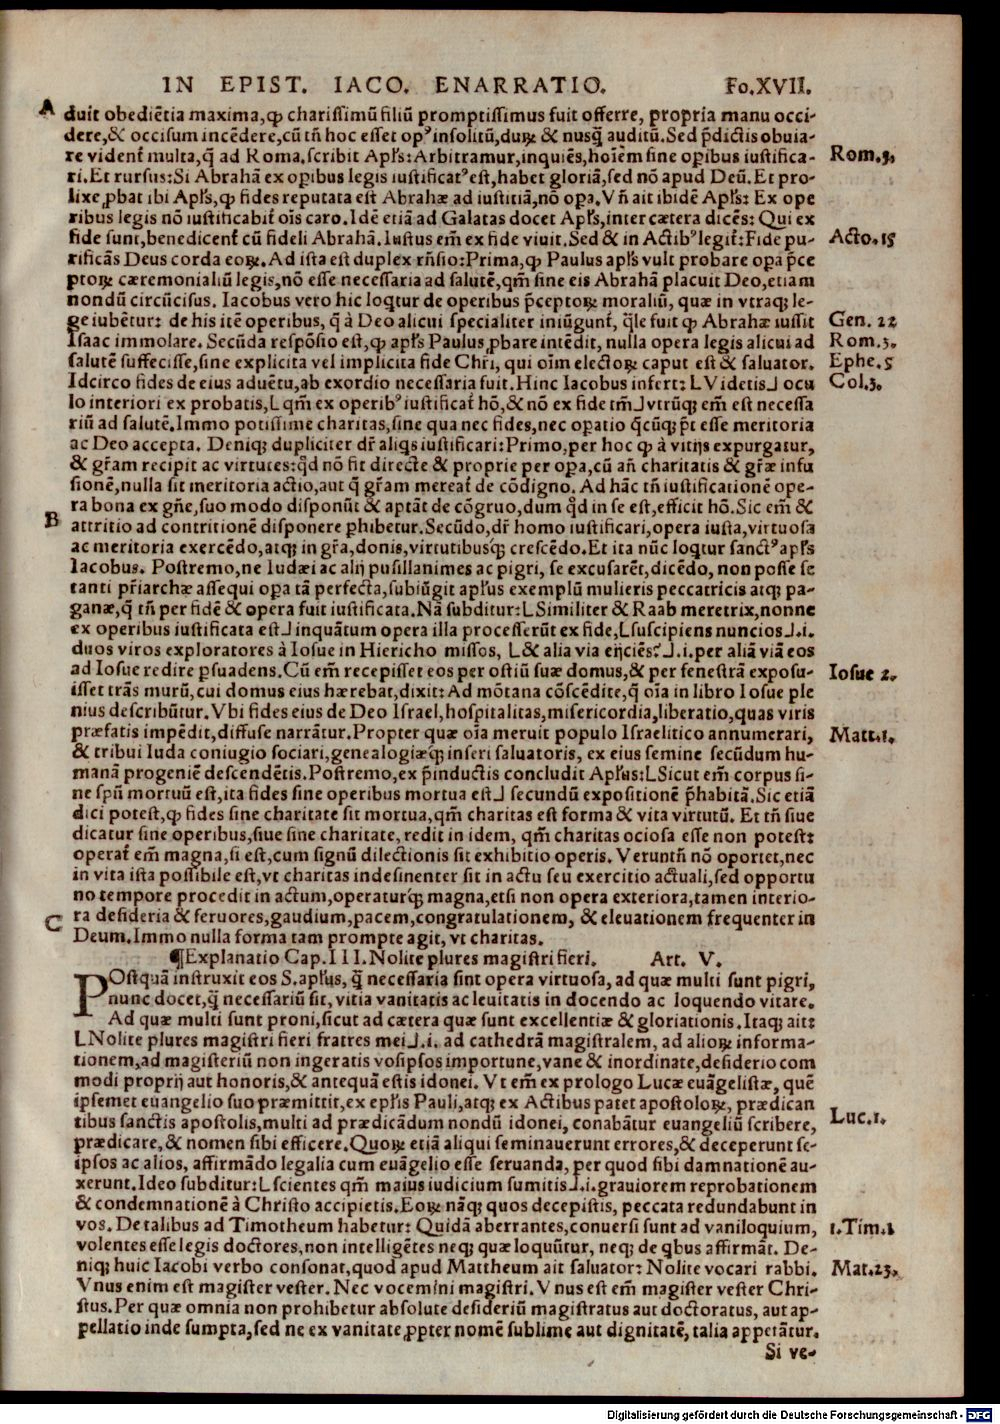 IN EPIST. IACO. ENARRATIO. Fo.XVII.
A
duit obediẽtia maxima,ꝙ charissimũ filiũ promptissimus fuit offerre, propria manu occi-
dere,& occisum incẽdere,cũ tñ hoc esset opꝰ insolitũ,duꝝ & nusꝗ̃ auditũ.Sed p̃dictis obuia-
re vident̃ multa,q̃ ad Roma.scribit Apl's:Arbitramur,inquiẽs,hoĩem sine oꝑibus iustifica- Rom.3.
ri.Et rursus:Si Abrahã ex oꝑibus legis iustificatꝰ est,habet gloriã,sed nõ apud Deũ.Et pro-
lixe ꝓbat ibi Apl's,ꝙ fides reputata est Abrahæ ad iustitiã,nõ oꝑa.Vñ ait ibidẽ Apl's: Ex ope
ribus legis nõ iustificabit̃ oĩs caro.Idẽ etiã ad Galatas docet Apl's,inter cætera dicẽs: Qui ex
fide sunt,benedicent̃ cũ fideli Abrahã.Iustus em̃ ex fide viuit.Sed & in Actibꝰ legit̃:Fide pu- Acto.15
rificãs Deus corda eoꝝ.Ad ista est duplex rñsio:Prima,ꝙ Paulus apl's vult probare oꝑa p̃ce
ptoꝝ cæremonialiũ legis,nõ esse necessaria ad salutẽ,qm̃ sine eis Abrahã placuit Deo,etiam
nondũ circũcisus. Iacobus vero hic loqtur de operibus p̃ceptoꝝ moraliũ, quæ in vtraq; le-
ge iubẽtur: de his itẽ operibus, q̃ à Deo alicui specialiter iniũgunt̃, q̃le fuit ꝙ Abrahæ iussit Gen. 22
Isaac immolare. Secũda respõsio est,ꝙ apl's Paulus ꝓbare intẽdit, nulla opera legis alicui ad Rom.3.
salutẽ suffecisse,sine explicita vel implicita fide Chr̃i, qui oĩm electoꝝ caput est & saluator. Ephe.5
Idcirco fides de eius aduẽtu,ab exordio necessaria fuit. Hinc Iacobus infert: L Videtis⅃ ocu Col.3.
lo interiori ex probatis,L qm̃ ex operibꝰ iustificat̃ hõ,& nõ ex fide tm̃⅃ vtrũq; em̃ est necessa
riũ ad salutẽ.Immo potissime charitas,sine qua nec fides,nec oꝑatio q̃cũq; p̃t esse meritoria
ac Deo accepta. Deniq; dupliciter dr̃ aliqs iustificari:Primo,per hoc ꝙ à vitijs expurgatur,
& gr̃am recipit ac virtutes:q̃d nõ fit directe & proprie per oꝑa,cũ añ charitatis & gr̃æ infu
sionẽ,nulla sit meritoria actio,aut q̃ gr̃am mereat̃ de cõdigno. Ad hãc tñ iustificationẽ ope-
ra bona ex gñe,suo modo disponũt & aptãt de cõgruo,dum q̃d in se est,efficit hõ.Sic em̃ &
B
attritio ad contritionẽ disponere ꝑhibetur.Secũdo,dr̃ homo iustificari,opera iusta,virtuosa
ac meritoria exercẽdo,atq; in gr̃a,donis,virtutibusq́; crescẽdo.Et ita nũc loqtur sanctꝰ apl's
Iacobus. Postremo,ne Iudæi ac alij pusillanimes ac pigri, se excusarẽt,dicẽdo, non posse se
tanti pr̃iarchæ assequi oꝑa tã perfecta,subiũgit apl'us exemplũ mulieris peccatricis atq; pa-
ganæ,q̃ tñ per fidẽ & opera fuit iustificata.Nã subditur:L Similiter & Raab meretrix,nonne
ex operibus iustificata est⅃ inquãtum opera illa processerũt ex fide,L suscipiens nuncios⅃.i.
duos viros exploratores à Iosue in Hiericho missos, L & alia via eijciẽs?⅃.i.per aliã viã eos
ad Iosue redire ꝑsuadens.Cũ em̃ recepisset eos per ostiũ suæ domus,& per fenestrã exposu- Iosue 2.
isset trãs murũ,cui domus eius hærebat,dixit: Ad mõtana cõscẽdite,q̃ oĩa in libro Iosue ple
nius describũtur.Vbi fides eius de Deo Israel,hospitalitas,misericordia,liberatio,quas viris
præfatis impẽdit,diffuse narrãtur.Propter quæ oĩa meruit populo Israelitico annumerari, Matt.1.
& tribui Iuda coniugio sociari,genealogiæq́; inseri saluatoris, ex eius semine secũdum hu-
manã progeniẽ descendẽtis.Postremo,ex p̃inductis concludit Apl'us:L Sicut em̃ corpus si-
ne spũ mortuũ est,ita fides sine operibus mortua est⅃ secundũ expositionẽ p̃habitã.Sic etiã
dici potest,ꝙ fides sine charitate sit mortua,qm̃ charitas est forma & vita virtutũ. Et tñ siue
dicatur sine operibus,siue sine charitate, redit in idem, qm̃ charitas ociosa esse non potest:
operat̃ em̃ magna,si est,cum signũ dilectionis sit exhibitio operis. Veruntñ nõ oportet,nec
in vita ista possibile est,vt charitas indesinenter sit in actu seu exercitio actuali,sed opportu
no tempore procedit in actum,operaturq́; magna,etsi non opera exteriora,tamen interio-
C
ra desideria & feruores,gaudium,pacem,congratulationem, & eleuationem frequenter in
Deum.Immo nulla forma tam prompte agit, vt charitas.
¶Explanatio Cap.III.Nolite plures magistri fieri. Art. V.
POstquã instruxit eos S.apl'us, q̃ necessaria sint opera virtuosa, ad quæ multi sunt pigri,
nunc docet,q̃ necessariũ sit, vitia vanitatis ac leuitatis in docendo ac loquendo vitare.
Ad quæ multi sunt proni,sicut ad cætera quæ sunt excellentiæ & gloriationis.Itaq; ait:
L Nolite plures magistri fieri fratres mei⅃.i. ad cathedrã magistralem, ad alioꝝ informa-
tionem,ad magisteriũ non ingeratis vosipsos importune, vane & inordinate,desiderio com
modi proprij aut honoris,& antequã estis idonei. Vt em̃ ex prologo Lucæ euãgelistæ, quẽ
ipsemet euangelio suo præmittit,ex epl'is Pauli,atq; ex Actibus patet apostoloꝝ, prædican
tibus sanctis apostolis,multi ad prædicãdum nondũ idonei, conabãtur euangeliũ scribere, Luc.1.
prædicare,& nomen sibi efficere.Quoꝝ etiã aliqui seminauerunt errores,& deceperunt se-
ipsos ac alios, affirmãdo legalia cum euãgelio esse seruanda, per quod sibi damnationẽ au-
xerunt. Ideo subditur:L scientes qm̃ maius iudicium sumitis⅃.i.grauiorem reprobationem
& condemnationẽ à Christo accipietis. Eoꝝ nãq; quos decepistis, peccata redundabunt in
vos. De talibus ad Timotheum habetur: Quidã aberrantes,conuersi sunt ad vaniloquium, 1.Tim.1
volentes esse legis doctores,non intelligẽtes neq; quæ loquũtur, neq; de qbus affirmãt. De-
niq; huic Iacobi verbo consonat,quod apud Mattheum ait saluator: Nolite vocari rabbi. Mat.23.
Vnus enim est magister vester. Nec vocemini magistri. Vnus est em̃ magister vester Chri-
stus. Per quæ omnia non prohibetur absolute desideriũ magistratus aut doctoratus, aut ap-
pellatio inde sumpta,sed ne ex vanitate ꝓpter nomẽ sublime aut dignitatẽ, talia appetãtur.
Si ve-
Digitalisierung gefördert durch die Deutsche Forschungsgemeinschaft - DFG